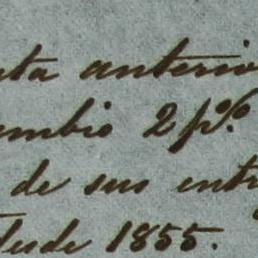 nta anterio
ambio 2 p%.
de sus entr
desde 1855.